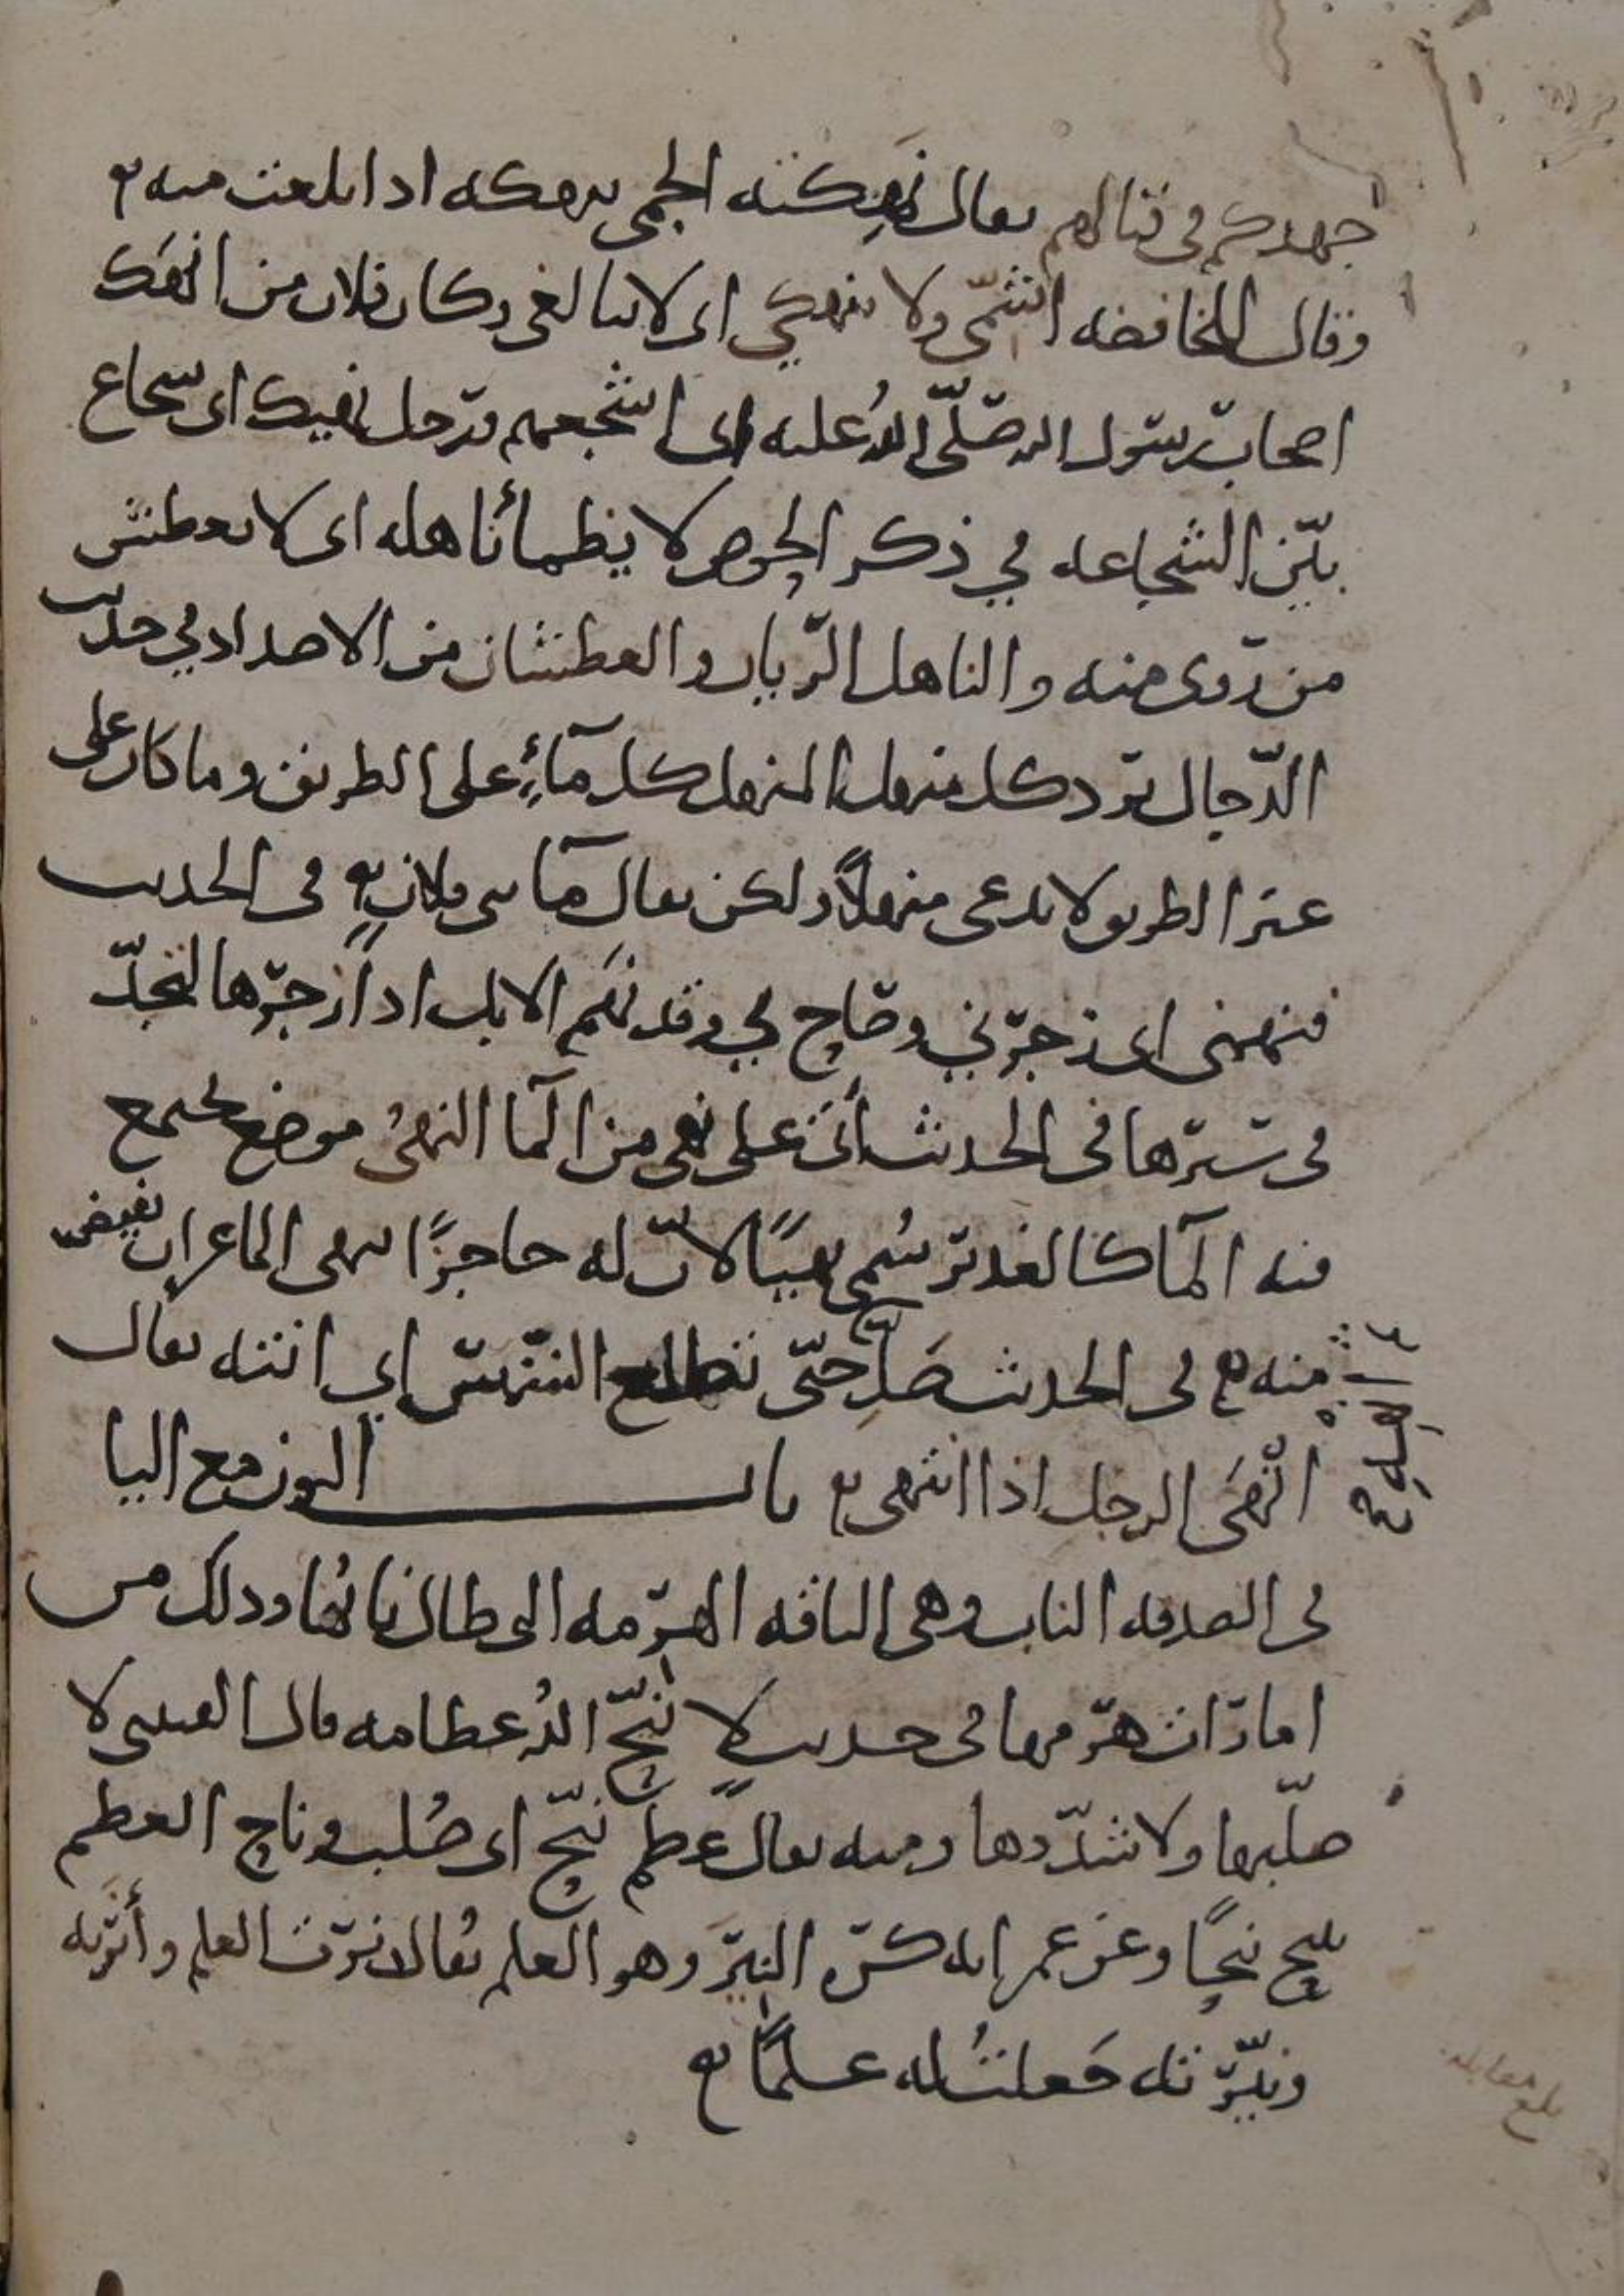 جهدكم في قتالهم يقال نَهِكته الحمى تنهكه اذا بلغت منه
وقال للخافضه اشمّي ولا تنهكي اى لا تبالغي وكان فلان من انهَك
اصحاب رسول الله صلّى اللهُ عليه اى اشجعهم ورجل نهيك اى شجاع
بيّن الشجاعه في ذكر الحوض لا يظمأ ناهله اى لا يعطش
من روى منه والناهل الرّيان والعطشان من الاضداد في حديث
الدّجال يرد كل منهل المنهل كل مآءٍ على الطريق وما كان على
غير الطريق لا يدعى منهلاً ولكن يقال مآ بني فلان في الحديث
فنهمني اى زجرني وصاح بي وقد نهَم الابل اذا زجرها لتجدّ
في سيرها في الحديث أتى على نهي من المآ النهيُ موضع يجتمع
فيه المآ كالغدير سُمي نهيًا لانّ له حاجزًا ينهى الما عن ان يفيض
منه في الحديث صَلِّ حتّى تطلع الشمس اي انته يقال
انْهَى الرجل اذا انتهى باب النون مع اليا
في الصدقه الناب وهي الناقه الهرمه التي طال نابها وذلك من
امارات هرمها في حديث لا نيّح اللهُ عظامه قال القتبى لا
صلّبها ولا شدّدها ومنه يقال عظم نيّح اى صُلب وناح العظم
ينيح نيحًا وعن عمر انه كره النِيرَ وهو العلم يُقال نرت العلم وأنرته
ونيّرته جَعلتُ له علمًا
بلغ مقابله